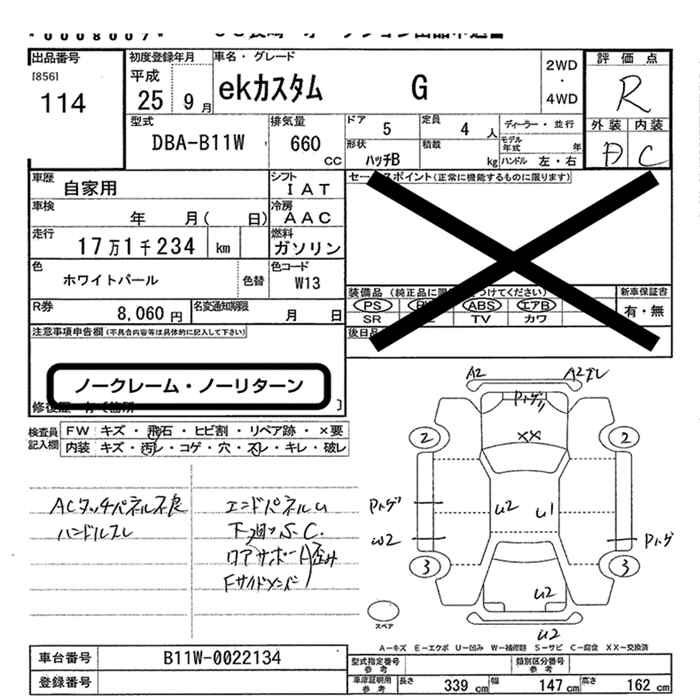 *0008007*
出品番号
[856]
114
初度登録年月
平成
25 9月
車名・グレード
ekカスタム G
2WD
・
4WD
評価点
R
外装 内装
D C
型式
DBA-B11W
排気量
660
CC
ドア
5
定員
4 人
ディーラー・並行
モデル年式 年
形状
ハッチB
積載
kg
ハンドル 左・右
車歴
自家用
シフト
IAT
車検
年 月( 日)
冷房
AAC
走行
17万1千234 km
燃料
ガソリン
色
ホワイトパール
色替
色コード
W13
R券
8,060円
名変通知期限
月 日
セールスポイント(正常に機能するものに限ります)
装備品(純正品に限 つけてください)
PS ABS エアB
SR TV カワ
新車保証書
有・無
後日品
注意事項申告欄(不具合内容等は具体的に記入して下さい)
ノークレーム・ノーリターン
修復歴 有(箇所 )
検査員記入欄
FW キズ・飛石・ヒビ割・リペア跡・×要
内装 キズ・汚レ・コゲ・穴・スレ・キレ・破レ
ACタッチパネル不良
ハンドルスレ
エンドパネルU
下廻りS.C.
リアサポート歪み
Fサイドメンバ
A2 A2ズレ
Pトゲリ
XX
2 2
Pトゲ U2 U1
W2 Pトゲ
3 3
U2
U2
スペア
A−キズ E−エクボ U−凹み W−補修跡 S−サビ C−腐食 XX−交換済
車台番号 B11W-0022134
登録番号
型式指定番号
参考
類別区分番号
参考
車庫証明用
参考
長さ 339 cm 幅 147 cm 高さ 162 cm